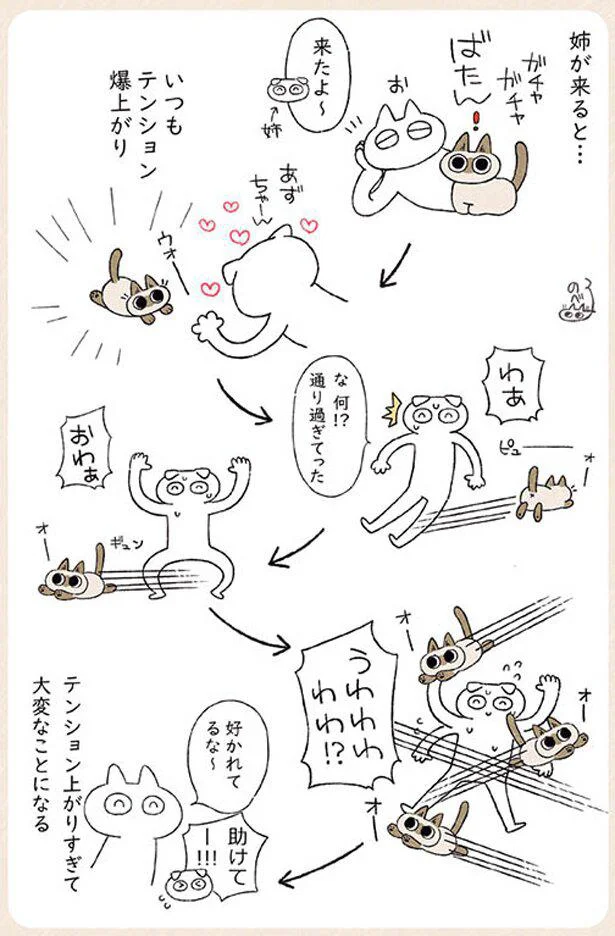 姉が来ると…
ガチャ
ガチャ
ばたん！
お
来たよ〜
姉
いつも
テンション
爆上がり
あず
ちゃーん
ウォー
のべ
わぁ
な 何!?
通り過ぎてった
ピュー
ォー
おわぁ
ギュン
オー
オー
オー
うわわわ
わわ!?
オー
好かれて
るな〜
助けて
ー!!!
テンション上がりすぎて
大変なことになる